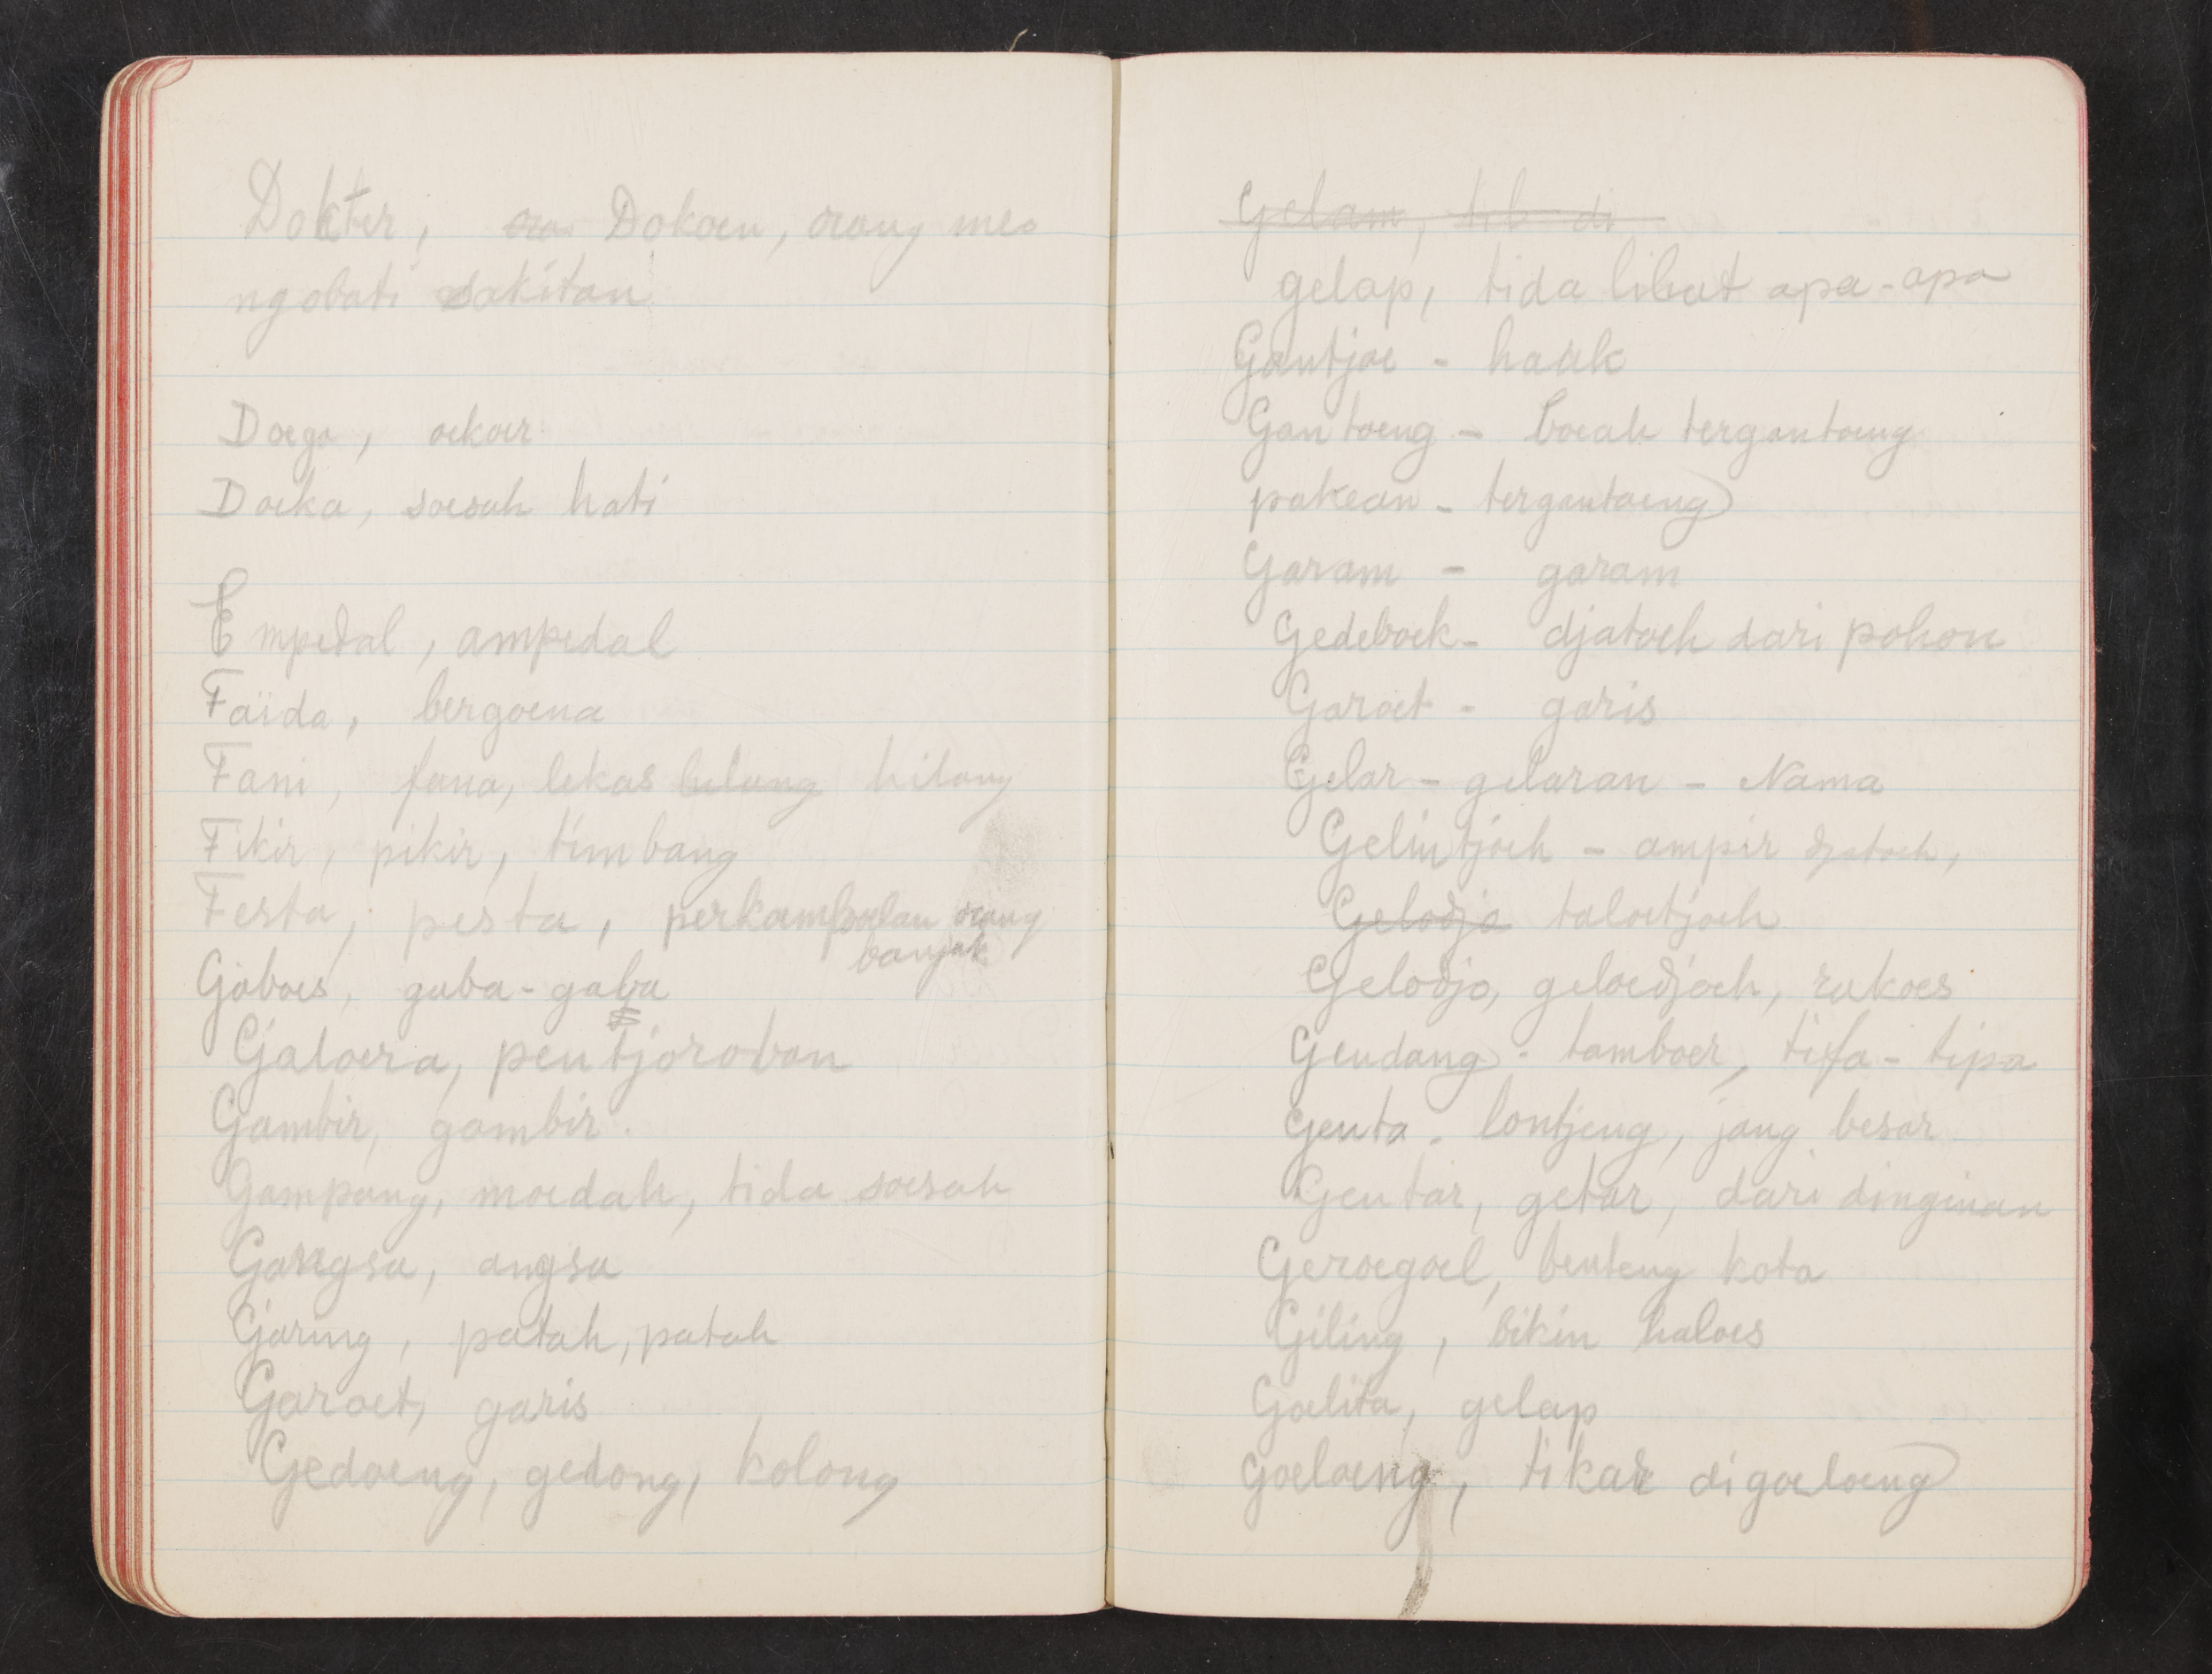 Dokter, Dokoen, orang me=
ngobati sakitan
Doega, oekoer
Doeka, soesah hati
Empedal, ampedal
Faïda, bergoena
Fani, fana, lekas hilang
Fikir, pikir, timbang
Festa, pesta, perkampoelan orang
banjak
Gaboes, gaba-gaba
Galoera, pentjoroban
Gambir, gambir.
Gampang, moedah, tida soesah
Gangsa, angsa
Garing, patah, patah
Garoet, garis
Gedoeng, gedong, kolong
Gelam, di
gelap, tida lihat apa-apa
Gantjoe - haak
Gantoeng - boeah tergantoeng
pakean - tergantoeng
Garam - garam
Gedeboek - djatoeh dari pohon
Garoet - garis
Gelar - gelaran - Nama
Gelintjoeh - ampir djatoeh,
Gelodjo taloetjoeh
Gelodjo, geloedjoeh, rakoes
Gendang - tamboer, tifa - tipa
Genta - lontjeng, jang besar
Gentar, getar, dari dinginan
Geroegoel, benteng kota
Giling, bikin haloes
Goelita, gelap
Goeloeng, tikar digoeloeng